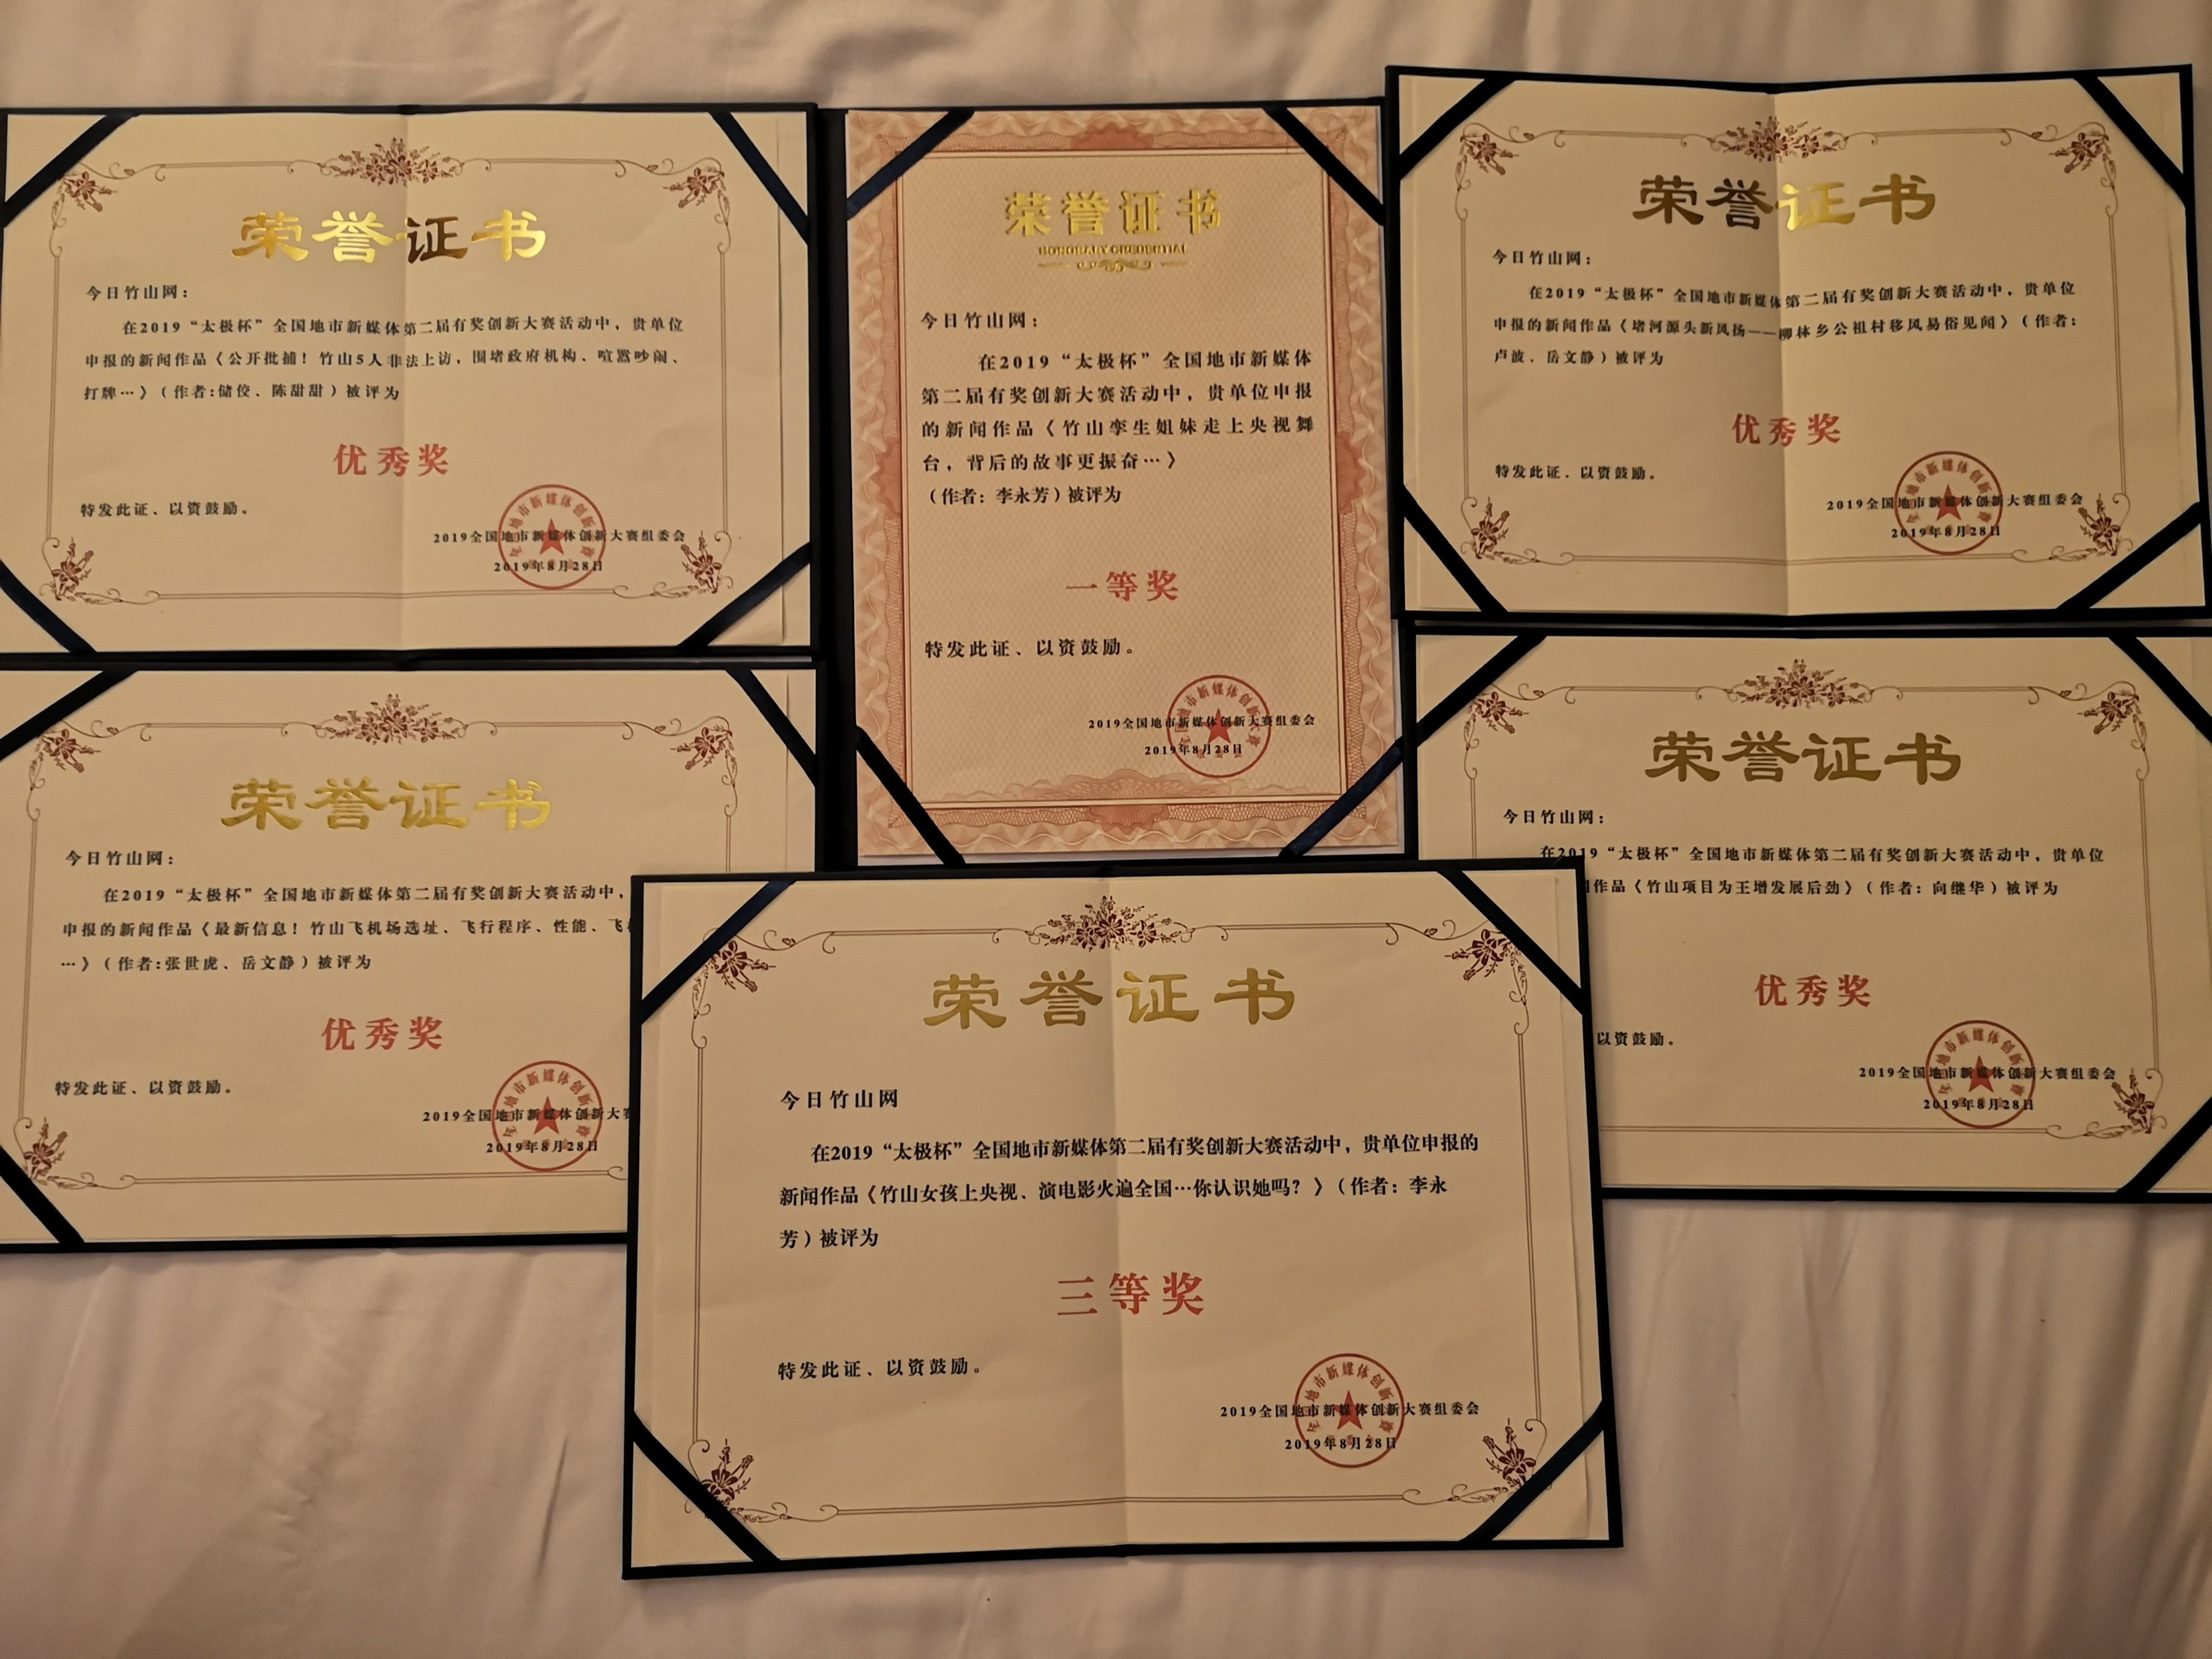 荣誉证书
今日竹山网：
在2019“太极杯”全国地市新媒体第二届有奖创新大赛活动中，贵单位
申报的新闻作品《公开批捕！竹山5人非法上访，围堵政府机构、喧嚣吵闹、
打牌…》（作者:储佼、陈甜甜）被评为
优秀奖
特发此证、以资鼓励。
2019全国地市新媒体创新大赛组委会
2019年8月28日
荣誉证书
HONORARY CREDENTIAL
今日竹山网：
在2019“太极杯”全国地市新媒体
第二届有奖创新大赛活动中，贵单位申报
的新闻作品《竹山孪生姐妹走上央视舞
台，背后的故事更振奋…》
（作者：李永芳）被评为
一等奖
特发此证、以资鼓励。
2019全国地市新媒体创新大赛组委会
2019年8月28日
荣誉证书
今日竹山网：
在2019“太极杯”全国地市新媒体第二届有奖创新大赛活动中，贵单位
申报的新闻作品《堵河源头新风扬——柳林乡公祖村移风易俗见闻》（作者：
卢波、岳文静）被评为
优秀奖
特发此证、以资鼓励。
2019全国地市新媒体创新大赛组委会
2019年8月28日
荣誉证书
今日竹山网：
在2019“太极杯”全国地市新媒体第二届有奖创新大赛活动中，
申报的新闻作品《最新信息！竹山飞机场选址、飞行程序、性能、飞
…》（作者:张世虎、岳文静）被评为
优秀奖
特发此证、以资鼓励。
2019全国地市新媒体创新大赛
2019年8月28日
荣誉证书
今日竹山网：
在2019“太极杯”全国地市新媒体第二届有奖创新大赛活动中，贵单位
作品《竹山项目为王增发展后劲》（作者：向继华）被评为
优秀奖
以资鼓励。
2019全国地市新媒体创新大赛组委会
2019年8月28日
荣誉证书
今日竹山网
在2019“太极杯”全国地市新媒体第二届有奖创新大赛活动中，贵单位申报的
新闻作品《竹山女孩上央视、演电影火遍全国…你认识她吗？》（作者：李永
芳）被评为
三等奖
特发此证、以资鼓励。
2019全国地市新媒体创新大赛组委会
2019年8月28日